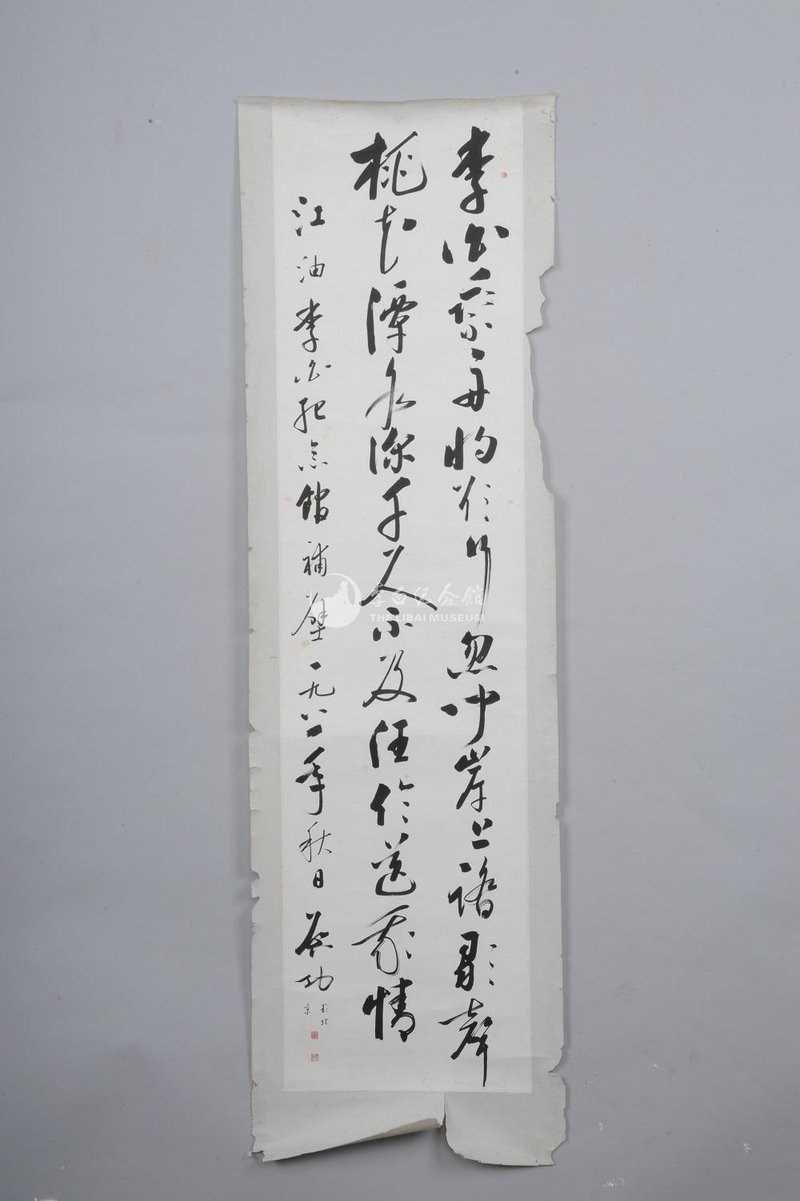 李白乘舟將欲行忽聞岸上踏歌聲
桃花潭水深千尺不及汪倫送我情
江油李白紀念館補壁一九八二年秋日 啟功
於北京
李白纪念馆
THE LIBAI MUSEUM